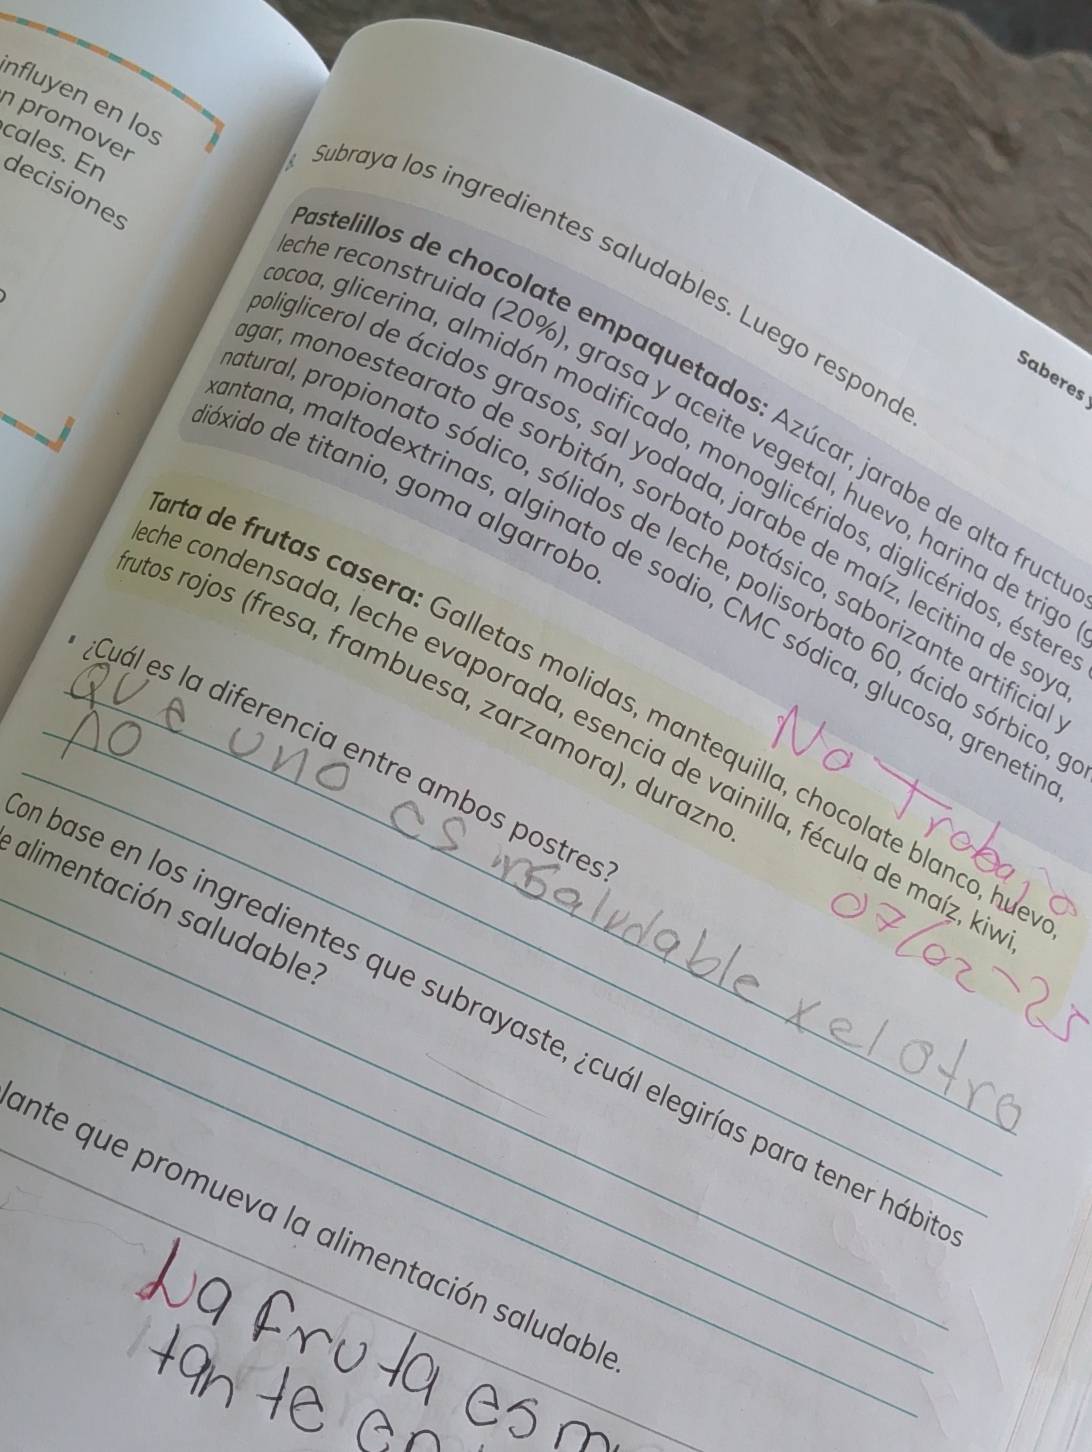 influyen en los
n promover
cales. En
decisiones
Saberes y
Subraya los ingredientes saludables. Luego responde.
Pastelillos de chocolate empaquetados: Azúcar, jarabe de alta fructuos
leche reconstruida (20%), grasa y aceite vegetal, huevo, harina de trigo (g
cocoa, glicerina, almidón modificado, monoglicéridos, diglicéridos, ésteres
poliglicerol de ácidos grasos, sal yodada, jarabe de maíz, lecitina de soya,
agar, monoestearato de sorbitán, sorbato potásico, saborizante artificial y
natural, propionato sódico, sólidos de leche, polisorbato 60, ácido sórbico, gom
xantana, maltodextrinas, alginato de sodio, CMC sódica, glucosa, grenetina,
dióxido de titanio, goma algarrobo.
Tarta de frutas casera: Galletas molidas, mantequilla, chocolate blanco, huevo,
leche condensada, leche evaporada, esencia de vainilla, fécula de maíz, kiwi,
frutos rojos (fresa, frambuesa, zarzamora), durazno.
No Trabajo
07/02-25
¿Cuál es la diferencia entre ambos postres?
Que uno es insaludable x el otro
no
Con base en los ingredientes que subrayaste, ¿cuál elegirías para tener hábitos
e alimentación saludable?
lante que promueva la alimentación saludable.
La fruta es m
tan te en